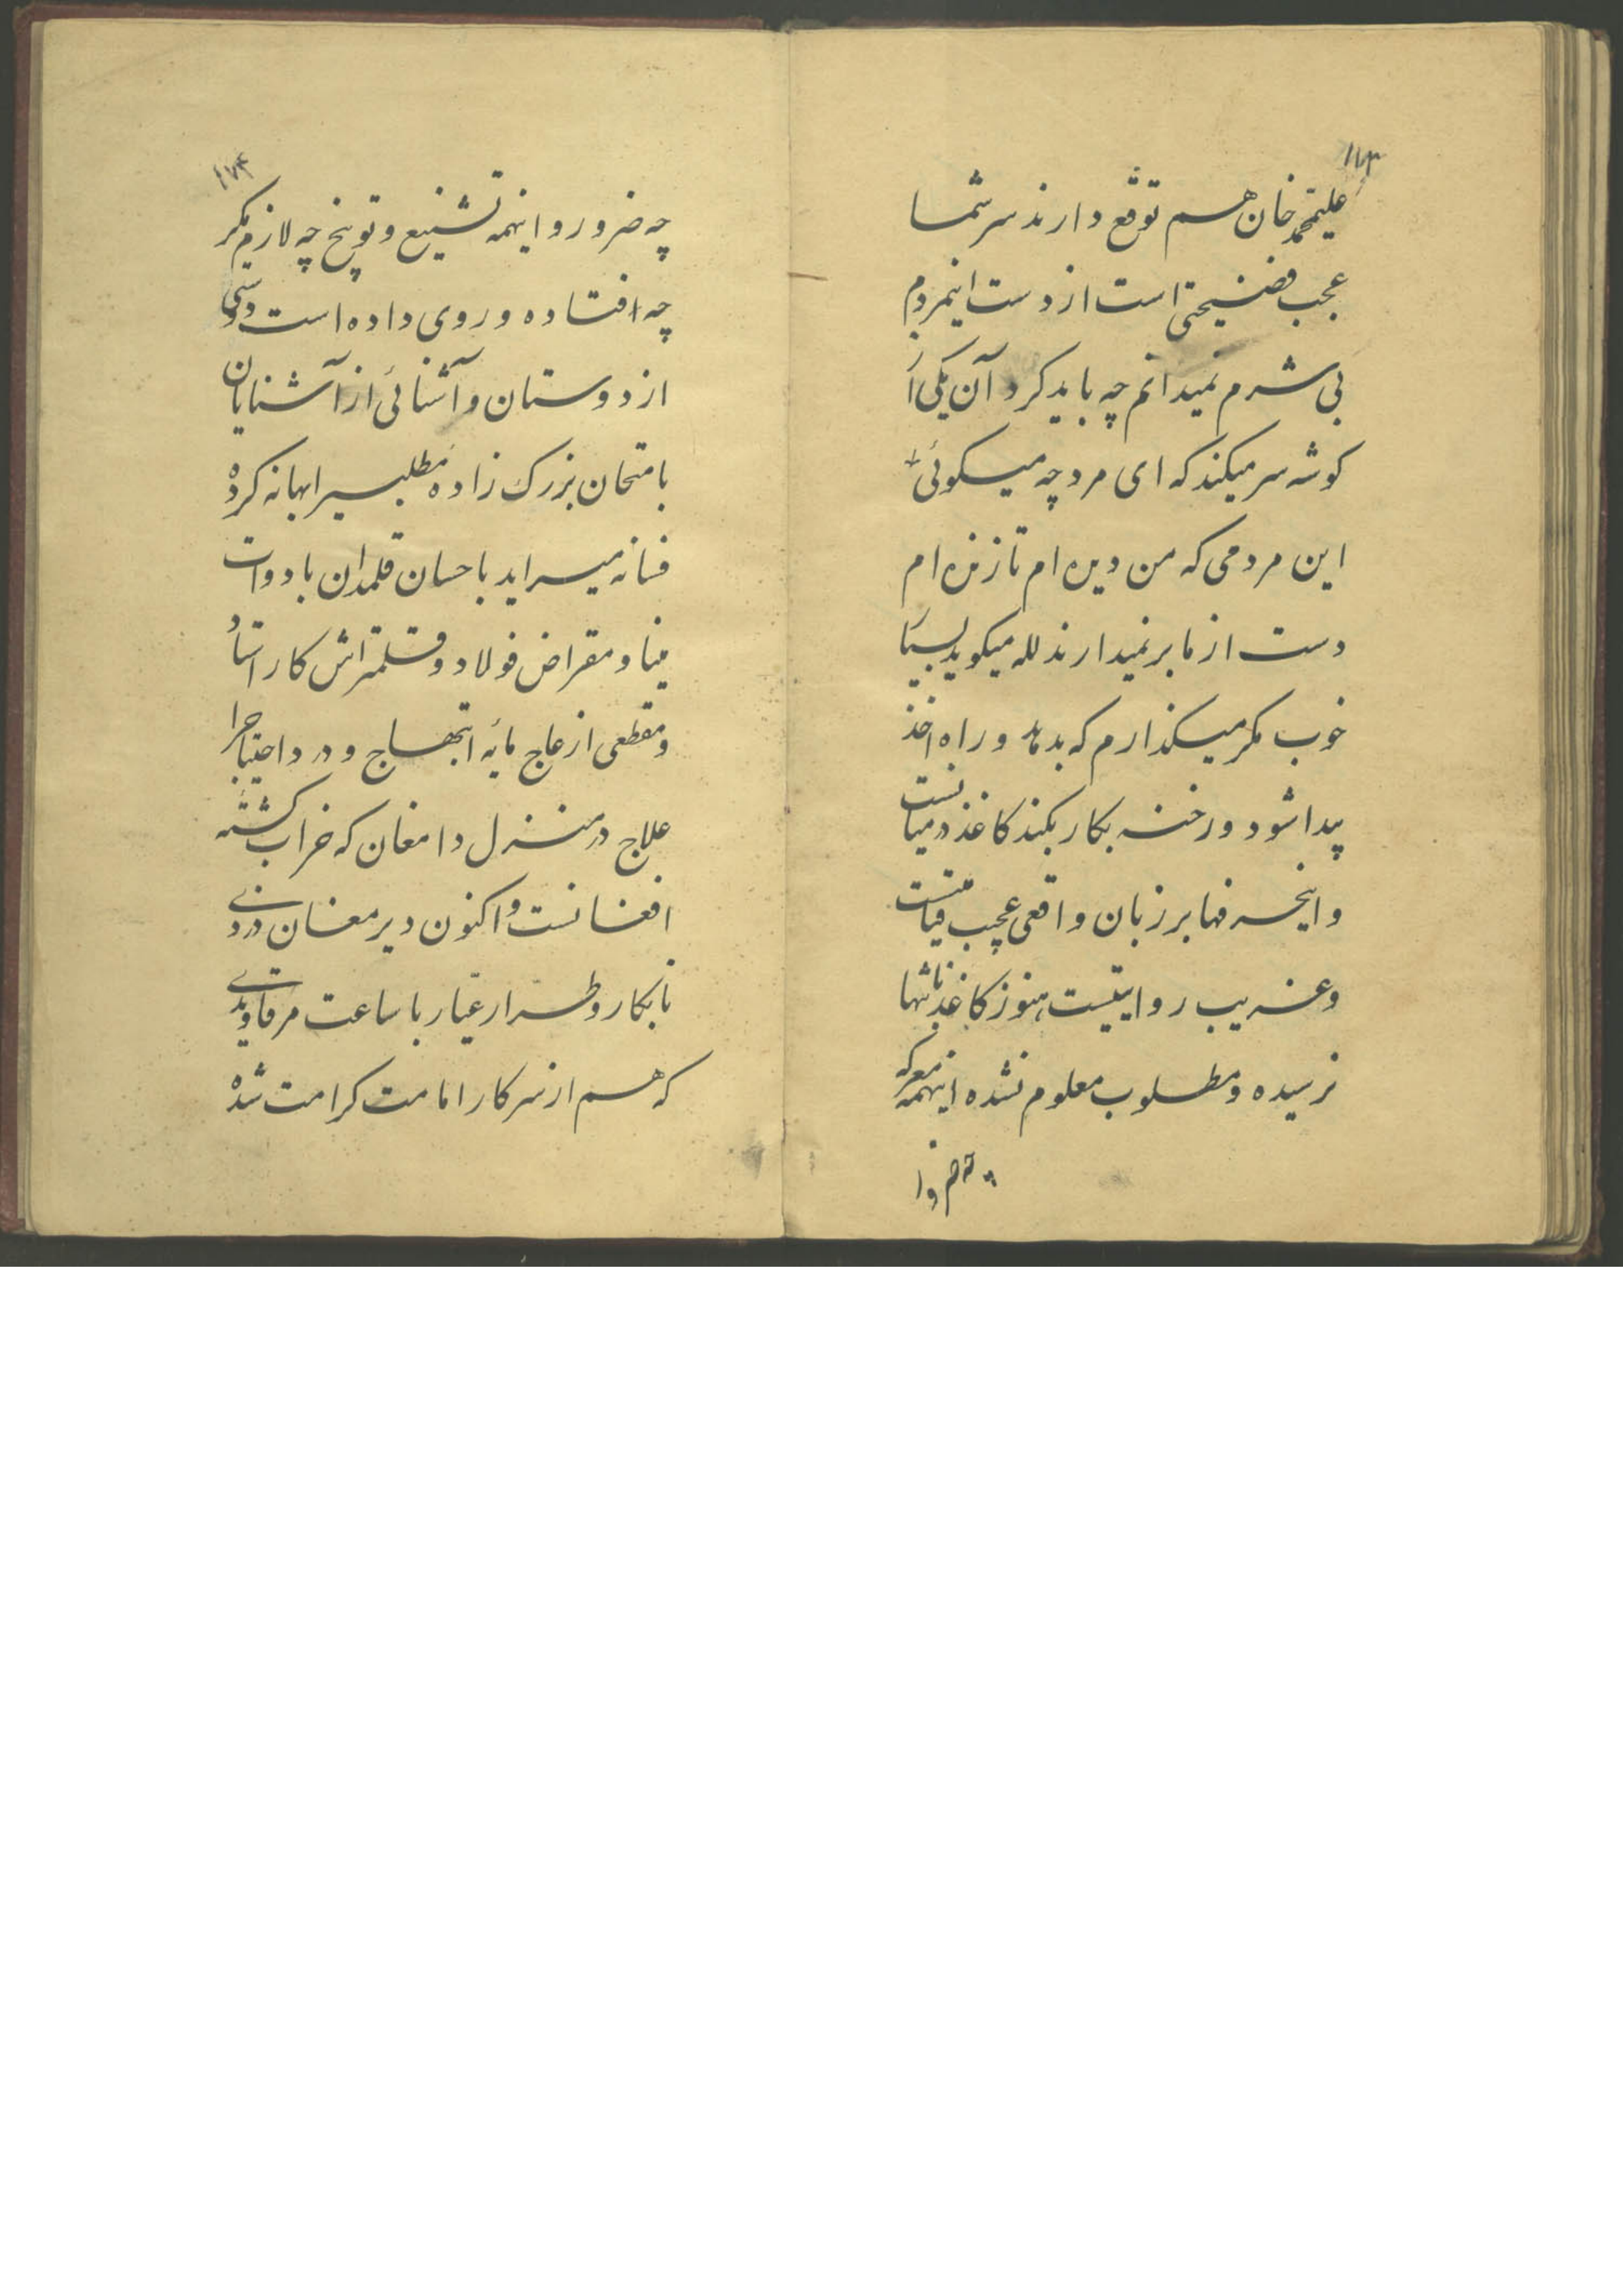 ۱۷۳
علیمحمد خان هم توقع دارند سر شما
عجب فضیحتی است از دست اینمردم
بی شرم نمیدانم چه باید کرد آن یکی از
کوشه سر میکند که ای مرد چه میکوئی
این مردمی که من دیده ام تا زنده ام
دست از ما بر نمیدارند لله میکوید بسیار
خوب مکر میکذارم که بدماند و راه اخذ
پیدا شود و رخنه بکار بکند کاغذ در میانست
و اینحرفها بر زبان واقعی عجب قیامتیست
و غریب روایتیست هنوز کاغذ باشها
نرسیده و مطلوب معلوم نشده اینهمه معرکه
چه ضرور و ا
۱۷۴
چه ضرور و اینهمه تشنیع و توبیخ چه لازم مکر
چه افتاده و روی داده است دوستی
از دوستان و آشنائی از آشنایان
بامتحان بزرک زاده مطلبیرا بهانه کرده
فسانه میسراید باحسان قلمدان با دوات
مینا و مقراض فولاد و قلمتراش کار استاد
و مقطعی از عاج مایه ابتهاج و درد احتیاجرا
علاج در منزل دامغان که خراب کشته
افغانست و اکنون دیر مغان دزدی
نابکار و طرار عیار با ساعت مرقاویدی
که هم از سرکار امامت کرامت شده